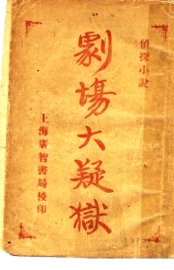 偵探小說
劇場大疑獄
上海廣智書局校印